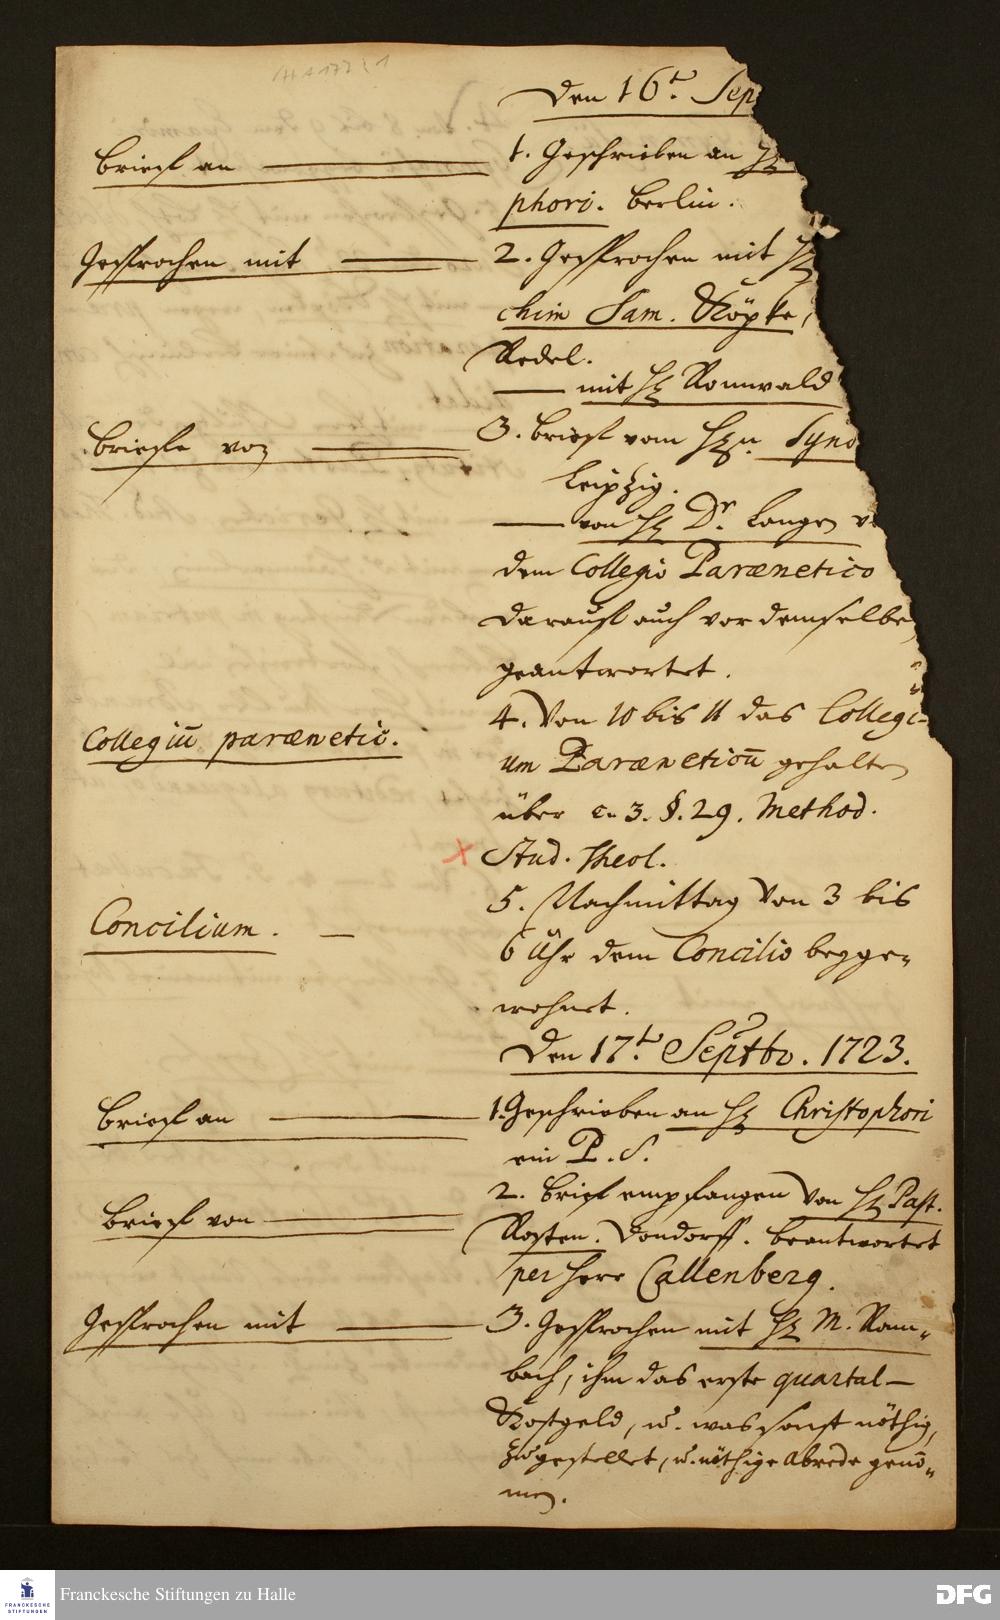 Den 16t. Sep
Brieff an
1. Geschrieben an H
phori. Berlin.
Gesprochen mit
2. Gesprochen mit H
chim Sam. Köpke,
Redel.
— mit H Romwald
Briefe von
3. Brieff vom Hrn. Syno
Leipzig.
— von H Dr. Langen
dem Collegio Parænetico
darauff auch vor demselbe
geantwortet.
Collegiū parænetic.
4. Von 10 bis 11 das Collegi-
um Paræneticū gehalten
über c. 3. §. 29. Method.
Stud. Theol.
Concilium. —
5. Nachmittag von 3 bis
6 Uhr dem Concilio beyge-
wohnet.
Den 17t. Septbr. 1723.
Brieff an
1. Geschrieben an H Christophori
ein P. S.
Brieff von
2. Brief empfangen von H Past.
Rosten. Dondorff. beantwortet
per Herr Callenberg.
Gesprochen mit
3. Gesprochen mit H M. Ram-
bach, ihm das erste quartal-
Kostgeld, u. was sonst nöthig,
zugestellet, u. nöthige Abrede genō-
men.
Franckesche Stiftungen zu Halle
FRANCKESCHE
STIFTUNGEN
DFG